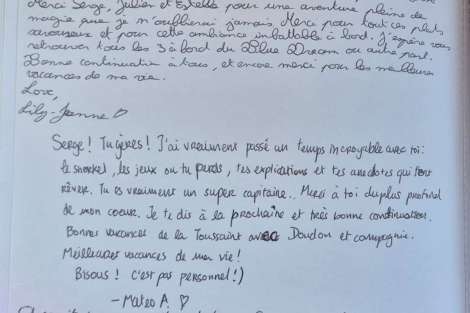 Merci Serge, Julien et Estelle pour une aventure pleine de
magie que je n'oublierai jamais. Merci pour tout ces plats
savoureux et pour cette ambiance imbattable à bord. J'espère vous
retrouver tous les 3 à bord du Blue Dream ou autre part.
Bonne continuation à tous, et encore merci pour les meilleures
vacances de ma vie.
Love,
Lily-Jeanne ♡
Serge! Tu gères! J'ai vraiment passé un temps incroyable avec toi:
le snorkel, les jeux ou tu perds, tes explications et tes anecdotes qui font
rêver. Tu es vraiment un super capitaine. Merci à toi du plus profond
de mon coeur. Je te dis à la prochaine et très bonne continuation.
Bonnes vacances de la Toussaint avec Doudou et compagnie.
Meilleures vacances de ma vie!
Bisous! C'est pas personnel!)
-Mateo A. ♡